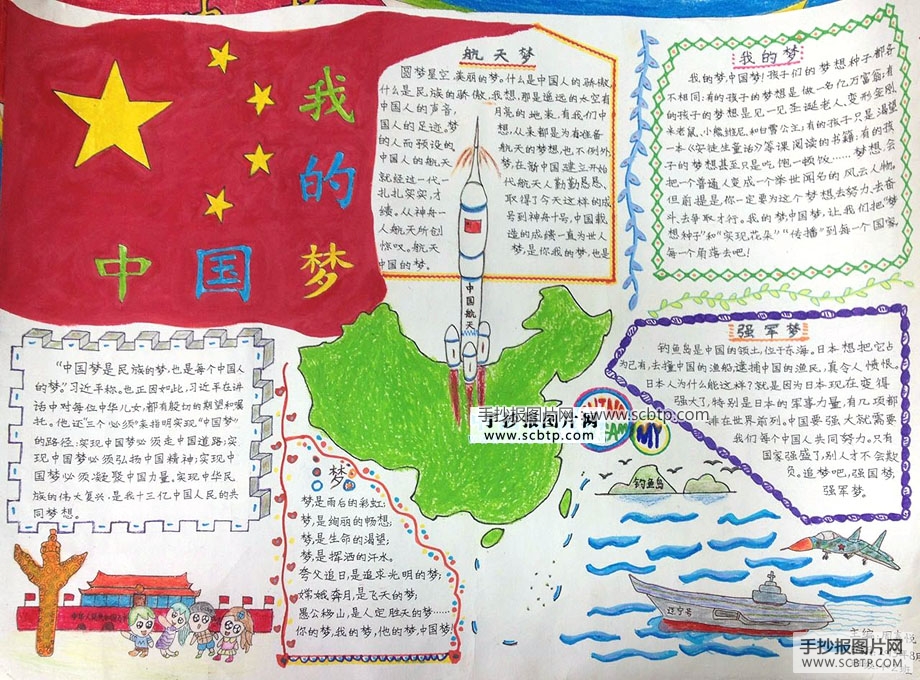 我的
中国梦
航天梦
圆梦星空,美丽的梦。什么是中国人的骄傲,
什么是民族的骄傲,我想,那是遥远的太空有
中国人的声音,
月亮的地表,有我们中
国人的足迹。梦
想,从来都是为有准备
的人而预设的,
航天的梦想,也不例外
中国人的航天
梦,在新中国建立开始
就经过一代一
代航天人勤勤恳恳、
扎扎实实,才
取得了今天这样的成
绩。从神舟一
号到神舟十号,中国载
人航天所创
造的成绩一直为世人
惊叹。航天
梦,是你我的梦,也是
中国的梦。
中国航天
我的梦
我的梦,中国梦!孩子们的梦想种子都各
不相同:有的孩子的梦想是做一名亿万富翁;有
的孩子的梦想是见一见圣诞老人、变形金刚、
米老鼠、小熊维尼、和白雪公主;有的孩子只是渴望
一本《笑徒生童话》等课阅读的书籍;有的孩
子的梦想甚至只是吃,饱一顿饭……梦想,会
把一个普通人变成一个举世闻名的风云人物。
但前提是,你一定要为这个梦想去努力、去奋
斗、去争取才行。我的梦,中国梦,让我们把“梦
想种子”和“实现花朵”“传播”到每一个国家,
每一个角落去吧!
“中国梦是民族的梦,也是每个中国人
的梦。”习近平称。也正因如此,习近平在讲
话中对每位中华儿女,都有殷切的期望和嘱
托。他还三个“必须”来指明实现“中国梦”
的路径:实现中国梦必须走中国道路;实
现中国梦必须弘扬中国精神;实现中
国梦必须凝聚中国力量。实现中华民
族的伟大复兴,是我十三亿中国人民的共
同梦想。
强军梦
钓鱼岛是中国的领土,位于东海。日本想把它占
为己有,去撞中国的渔船,逮捕中国的渔民,真令人愤恨。
日本人为什么能这样?就是因为日本现在变得
强大了,特别是日本的军事力量,有几项都
排在世界前列。中国要强大就需要
我们每个中国人共同努力。只有
国家强盛了,别人才不会欺
负。追梦吧,强国梦,
强军梦。
手抄报图片网:www.scbtp.com
手抄报图片网
www.scbtp.com
MY
钓鱼岛
梦
梦,是雨后的彩虹;
梦,是绚丽的畅想;
梦,是生命的渴望;
梦,是挥洒的汗水。
夸父追日,是追求光明的梦;
嫦娥奔月,是飞天的梦;
愚公移山,是人定胜天的梦……
你的梦,我的梦,他的梦,中国梦!
辽宁号
手抄报图片网
WWW.SCBTP.COM